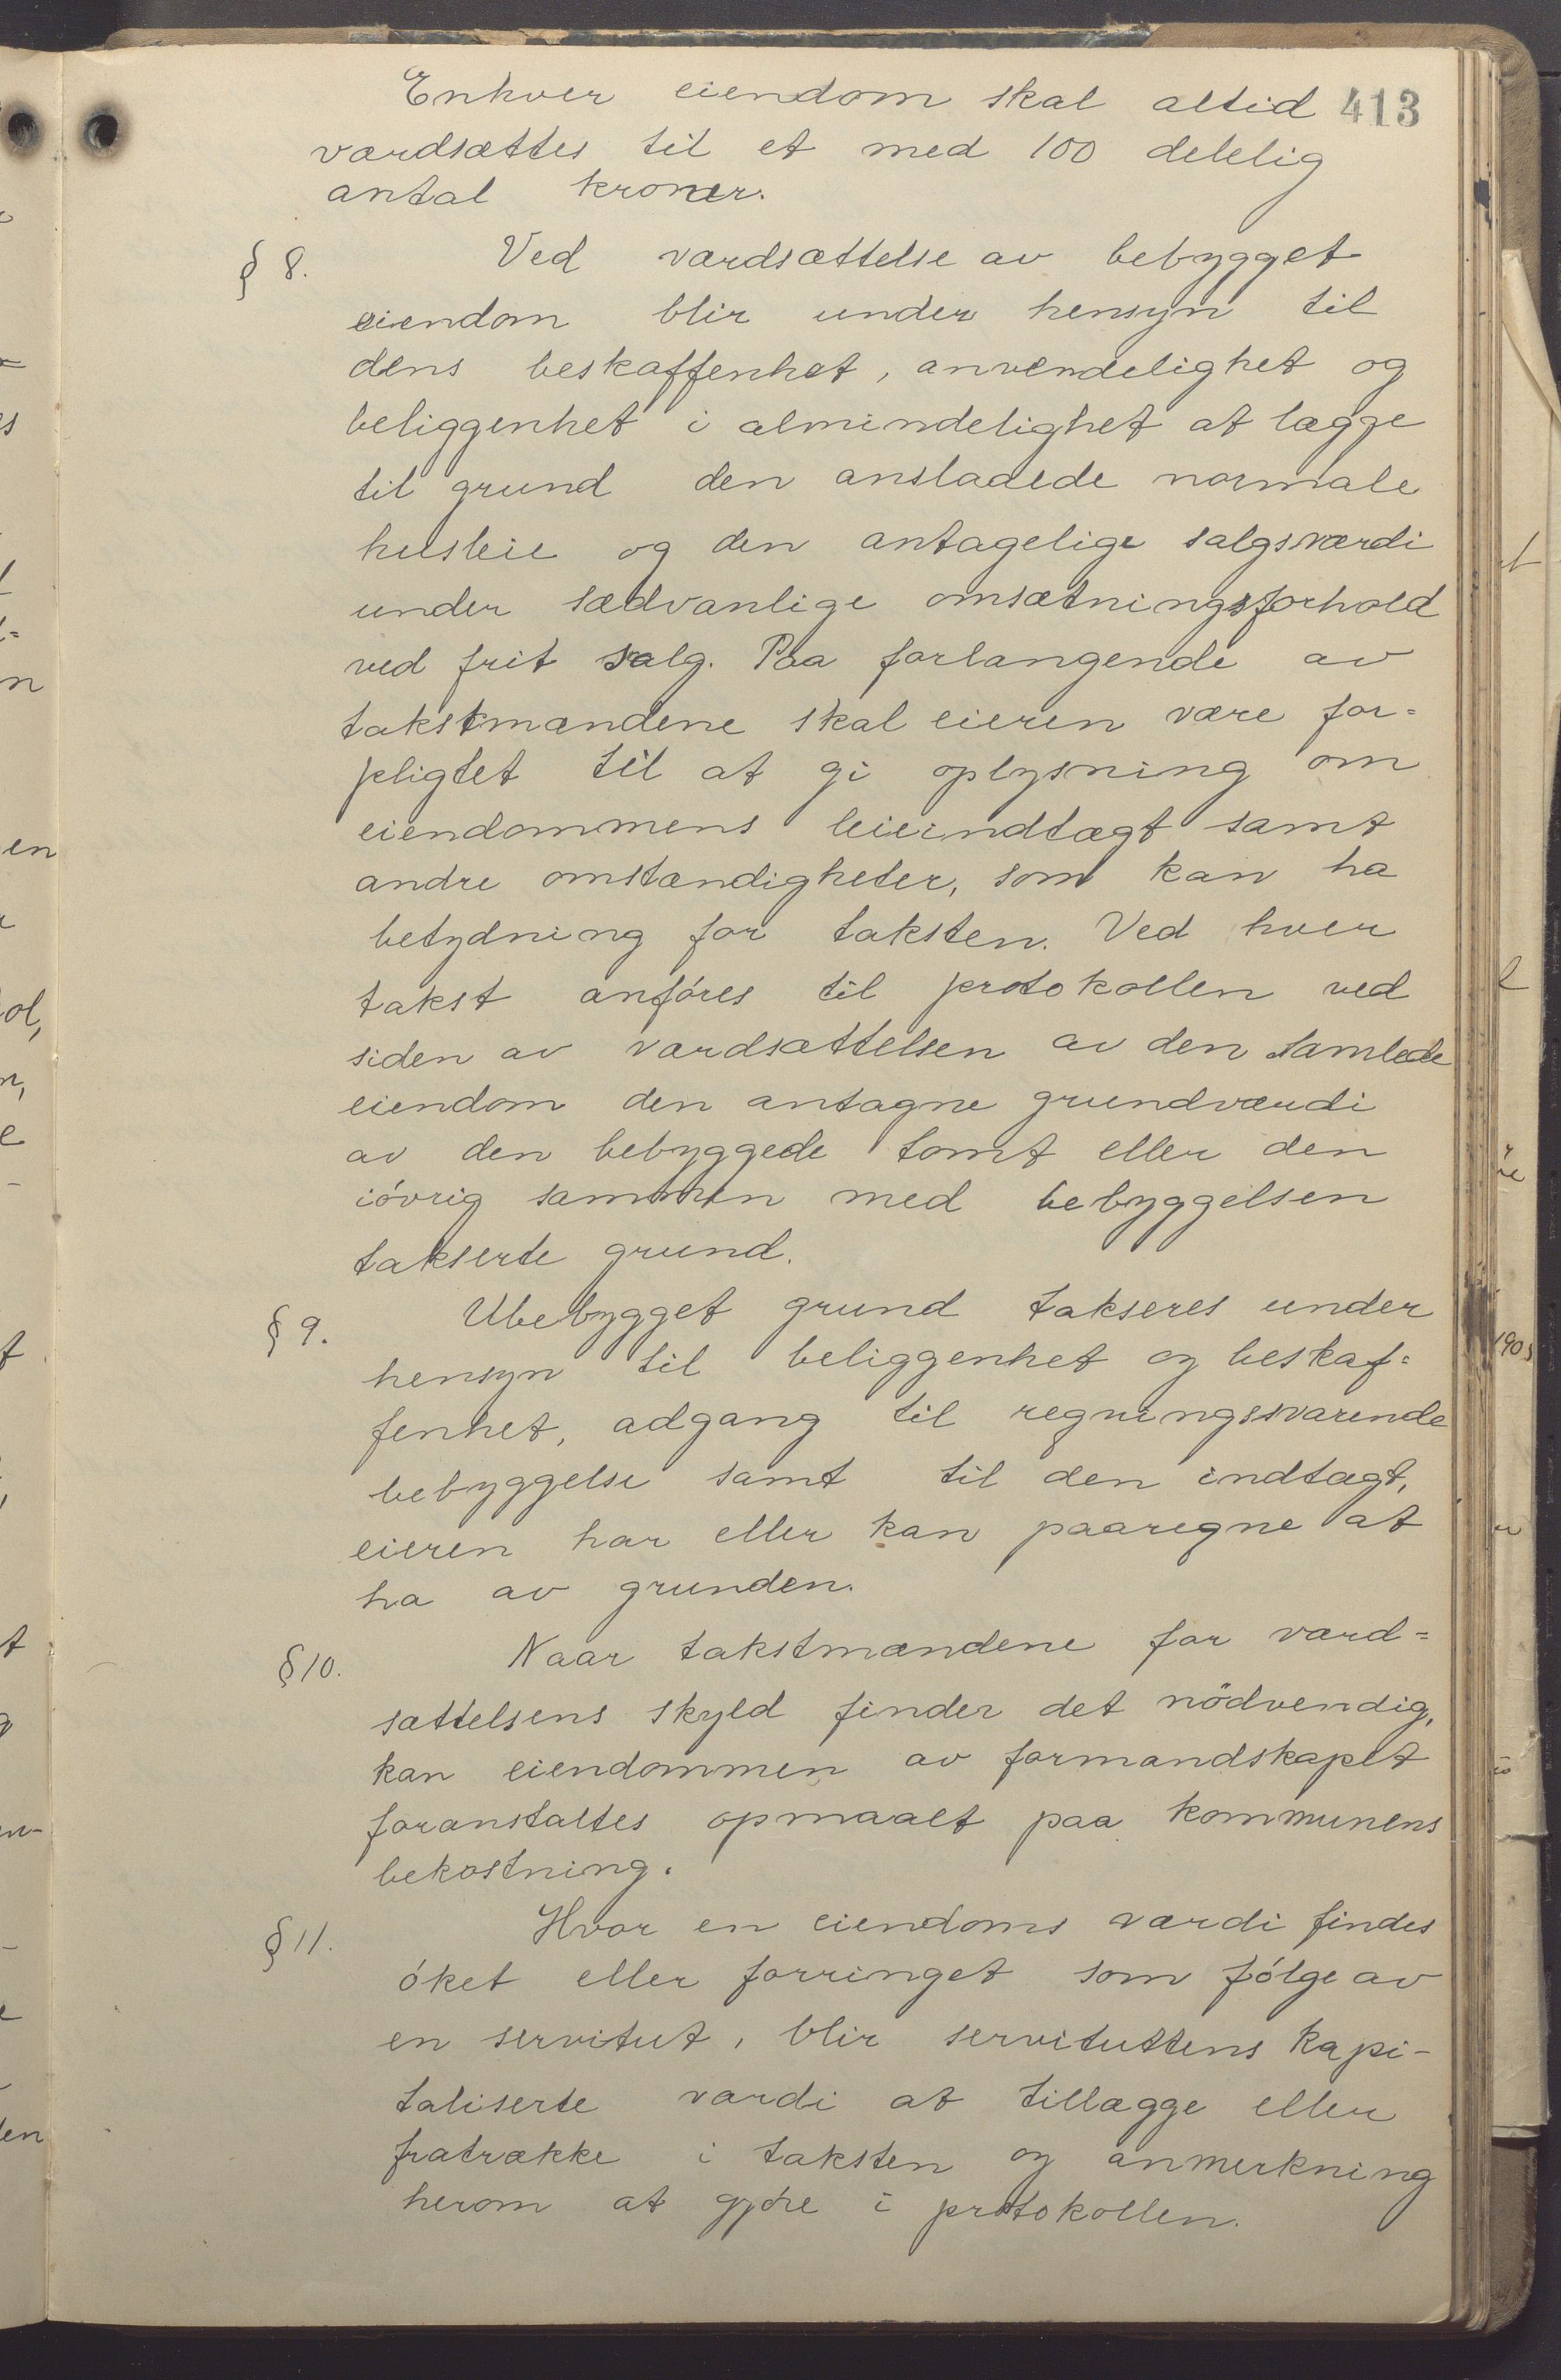 Enhver eiendom skal altid 413
værdsættes til et med 100 delelig
antal kroner.
§ 8. Ved værdsættelse av bebygget
eiendom blir under hensyn til
dens beskaffenhet, anvendelighet og
beliggenhet i almindelighet at lægge
til grund den ansladede normale
husleie og den antagelige salgsværdi
under sædvanlige omsætningsforhold
ved frit salg. Paa forlangende av
takstmændene skal eieren være for=
pligtet til at gi oplysning om
eiendommens leieindtægt samt
andre omstændigheter, som kan ha
betydning for taksten. Ved hver
takst anføres til protokollen ved
siden av værdsættelsen av den samlede
eiendom den antagne grundværdi
av den bebyggede tomt eller den
iøvrig sammen med bebyggelsen
takserte grund.
§ 9. Ubebygget grund takseres under
hensyn til beliggenhet og beskaf=
fenhet, adgang til regningssvarende
bebyggelse samt til den indtægt,
eieren har eller kan paaregne at
ha av grunden.
§ 10. Naar takstmændene for værd=
sættelsens skyld finder det nödvendig,
kan eiendommen av formandskapet
foranstaltes opmaalt paa kommunens
bekostning.
§ 11. Hvor en eiendoms værdi findes
øket eller forringet som følge av
en servitut, blir servituttens kapi-
taliserte værdi at tillægge eller
fratrække i taksten og anmerkning
herom at gjøre i protokollen.